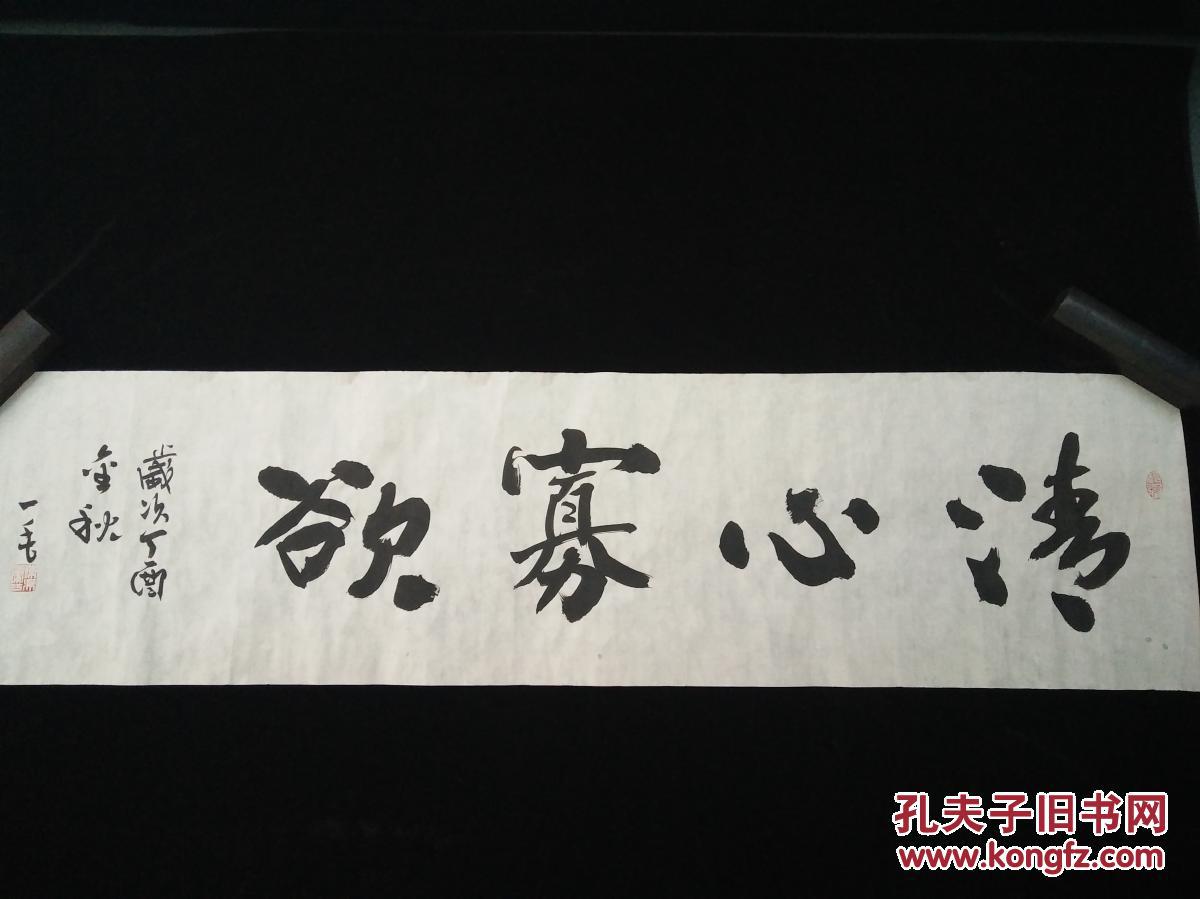 清心寡欲
歲次丁酉
金秋
孔夫子旧书网
www.kongfz.com